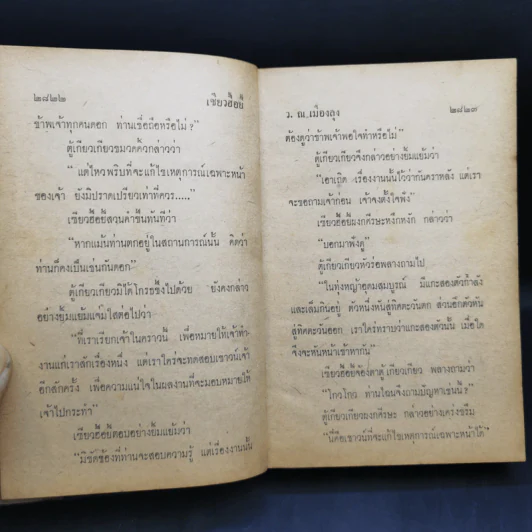 ๒๘๒๒ เซียวฮื้อยี้
ข้าพเจ้าทุกคนดอก ท่านเชื่อถือหรือไม่?"
ตู้เกียวเกียวขมวดคิ้วกล่าวว่า
"แต่ไหวพริบที่จะแก้ไขเหตุการณ์เฉพาะหน้า
ของเจ้า ยังมิปราดเปรียวเท่าที่ควร....."
เซียวฮื้อยี้สวนคำขึ้นทันทีว่า
"หากแม้นท่านตกอยู่ในสถานการณ์นั้น คิดว่า
ท่านก็คงเป็นเช่นกันดอก"
ตู้เกียวเกียวมิได้โกรธขึ้งไปด้วย ยังคงกล่าว
อย่างยิ้มแย้มแจ่มใสต่อไปว่า
"ที่เราเรียกเจ้าในคราวนี้ เพื่อหมายให้เจ้าทำ
งานแก่เราสักเรื่องหนึ่ง แต่เราใคร่จะทดสอบเชาวน์เจ้า
อีกสักครั้ง เพื่อความแน่ใจในผลงานที่จะมอบหมายให้
เจ้าไปกระทำ"
เซียวฮื้อยี้ตอบอย่างยิ้มแย้มว่า
"มิขัดข้องที่ท่านจะสอบความรู้ แต่เรื่องงานนั้น
ว. ณ เมืองลุง ๒๘๒๓
ต้องดูว่าข้าพเจ้าพอใจทำหรือไม่"
ตู้เกียวเกียวจึงกล่าวอย่างยิ้มแย้มว่า
"เอาเถิด เรื่องงานนั้นไว้ว่ากันคราหลัง แต่เรา
จะขอถามเจ้าก่อน เจ้าจงตั้งใจฟัง"
เซียวฮื้อยี้ผงกศีรษะหงึกหงัก กล่าวว่า
"บอกมาฟังดู"
ตู้เกียวเกียวหัวร่อพลางถามไป
"ในทุ่งหญ้าอุดมสมบูรณ์ มีแกะสองตัวกำลัง
และเล็มกินอยู่ ตัวหนึ่งหันสู่ทิศตะวันตก ส่วนอีกตัวหัน
สู่ทิศตะวันออก เราใคร่ทราบว่าแกะสองตัวนั้น เมื่อใด
จึงจะหันหน้าเข้าหากัน"
เซียวฮื้อยี้จ้องตาตู้เกียวเกียว พลางถามว่า
"โกวโกว ท่านไฉนจึงถามปัญหาเช่นนี้?"
ตู้เกียวเกียวผงกศีรษะ กล่าวอย่างเคร่งขรึม
"นี่คือเชาวน์ที่จะแก้ไขเหตุการณ์เฉพาะหน้าได้"